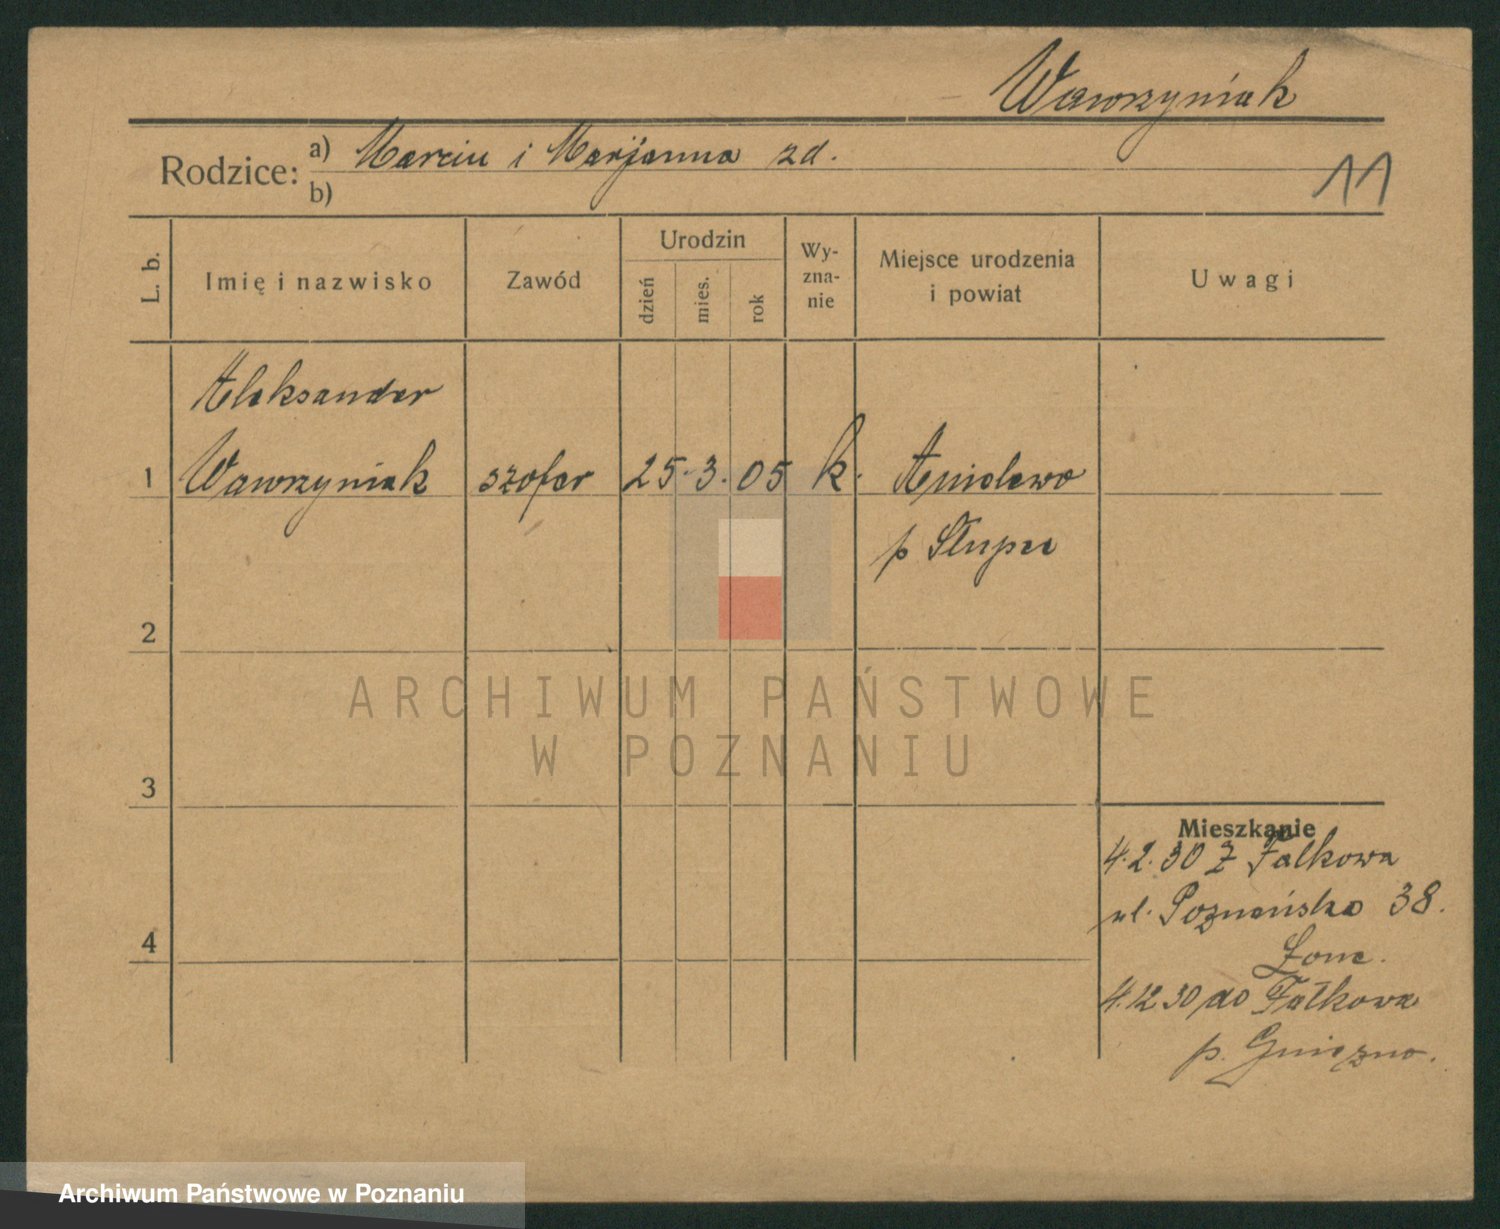 Wawrzyniak
Rodzice: a) Marcin i Marjanna zd.
b)
11
L. b.
Imię i nazwisko
Zawód
Urodzin
dzień
mies.
rok
Wy-
zna-
nie
Miejsce urodzenia
i powiat
Uwagi
Aleksander
1 Wawrzyniak szofer 25. 3. 05 k. Anielewo
p Słupca
2
ARCHIWUM PAŃSTWOWE
W POZNANIU
3
Mieszkanie
4.2.30 z Fałkowa
ul. Poznańska 38.
4
4.12 30 do Fałkowa
p. Gniezno.
Archiwum Państwowe w Poznaniu